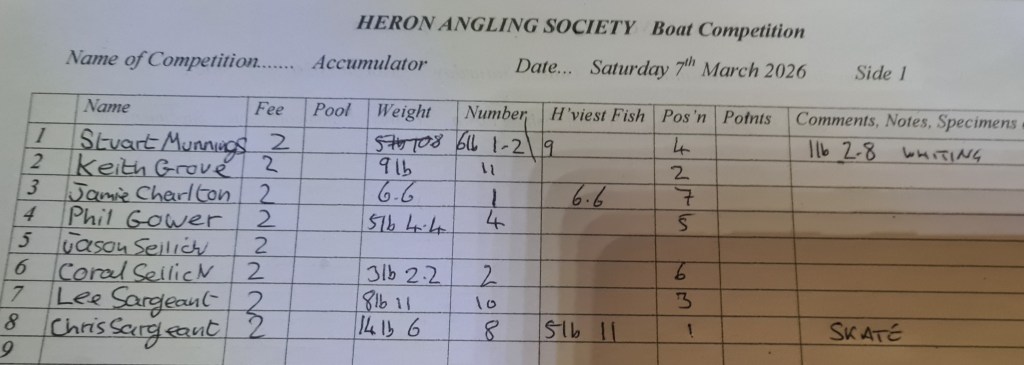 HERON ANGLING SOCIETY Boat Competition
Name of Competition....... Accumulator Date... Saturday 7th March 2026 Side 1
Name Fee Pool Weight Number H'viest Fish Pos'n Points Comments, Notes, Specimens
1 Stuart Munnings 2 6lb 1-2 9 4 1lb 2.8 WHITING
2 Keith Grove 2 9lb 11 2
3 Jamie Charlton 2 6.6 1 6.6 7
4 Phil Gower 2 5lb 4.4 4 5
5 Jason Sellick 2
6 Coral SellicN 2 3lb 2.2 2 6
7 Lee Sargeant 2 8lb 11 10 3
8 Chris Sargeant 2 14lb 6 8 5lb 11 1 SKATE
9